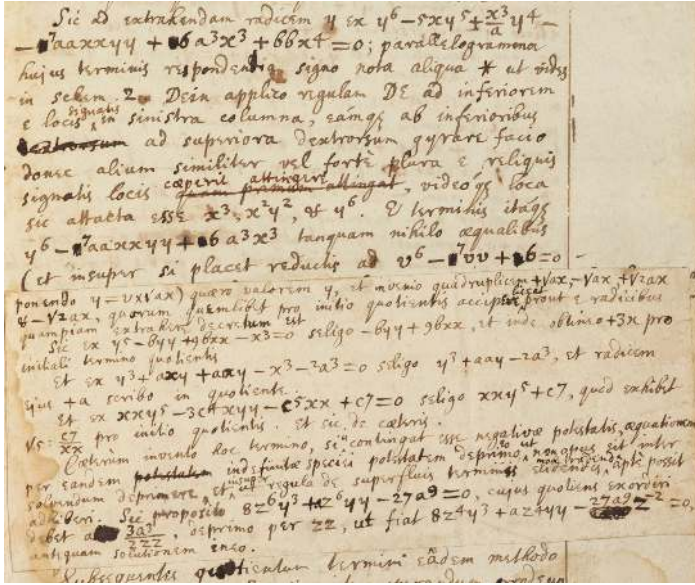 Sic ad extrahendam radicem y ex y⁶ - 5xy⁵ + x³/a y⁴ -
- 7aaxxyy + 6a³x³ + bbx⁴ = 0; parallelogramma
hujus terminis respondentia signo nota aliqua * ut vides
in schem. 2. Dein applico regulam DE ad inferiorem
e locis signatis in sinistra columna, eamqꝫ ab inferioribus
dextrorsum ad superiora dextrorsum gyrare facio
donec alium similiter vel fortè plura e reliquis
signatis locis cœperit attingere quam primum attingat, videoqꝫ loca
sic attacta esse x³, x²y², & y⁶. E terminis itaqꝫ
y⁶ - 7aaxxyy + 6a³x³ tanquam nihilo æqualibus
(et insuper si placet reductis ad v⁶ - 7vv + 6 = 0
ponendo y = v×√ax) quæro valorem y, et invenio quadruplicem +√ax, -√ax, +√2ax
& -√2ax, quorum quemlibet pro initio quotientis accipere licet prout e radicibus
quampiam extrahere decretum est
Sic ex y⁵ - byy + 9bxx - x³ = 0 seligo - byy + 9bxx, et inde obtineo +3x pro
initiali termino quotientis
Et ex y³ + axy + aay - x³ - 2a³ = 0 seligo y³ + aay - 2a³, et radicem
ejus +a scribo in quotiente.
Et ex xxy⁵ - 3c⁴xyy - c⁵xx + c⁷ = 0 seligo xxy⁵ + c⁷, quod exhibet
√5: c⁷/xx pro initio quotientis. Et sic de cæteris.
Cæterùm invento hoc termino, si contingat esse negativæ potestatis, æquationem
per eandem potestatem indefinitæ speciei potestatem deprimo, ut non opus sit inter
solvendum deprimere, et insuper ut regula de superfluis terminis mox tradenda elidendis, aptè possit
adhiberi. Sic proposito 8z⁶y³ + az⁶yy - 27a⁹ = 0, cujus quotiens exordiri
debet a 3a³/2zz, deprimo per zz, ut fiat 8z⁴y³ + az⁴yy - 27a⁹z⁻² = 0,
antequam solutionem ineo.
Subsequentes quotientum termini eâdem methodo